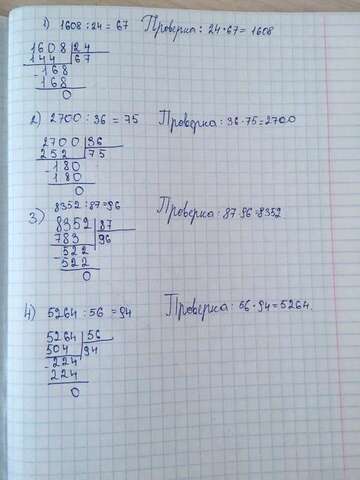 1) 1608 : 24 = 67 Проверка: 24·67 = 1608
1608 24
144 67
-168
168
0
2) 2700 : 36 = 75 Проверка: 36·75=2700
2700 36
252 75
-180
180
0
3) 8352 : 87 = 96 Проверка: 87·96=8352
8352 87
783 96
-522
522
0
4) 5264 : 56 = 94 Проверка: 56·94=5264.
5264 56
504 94
-224
224
0